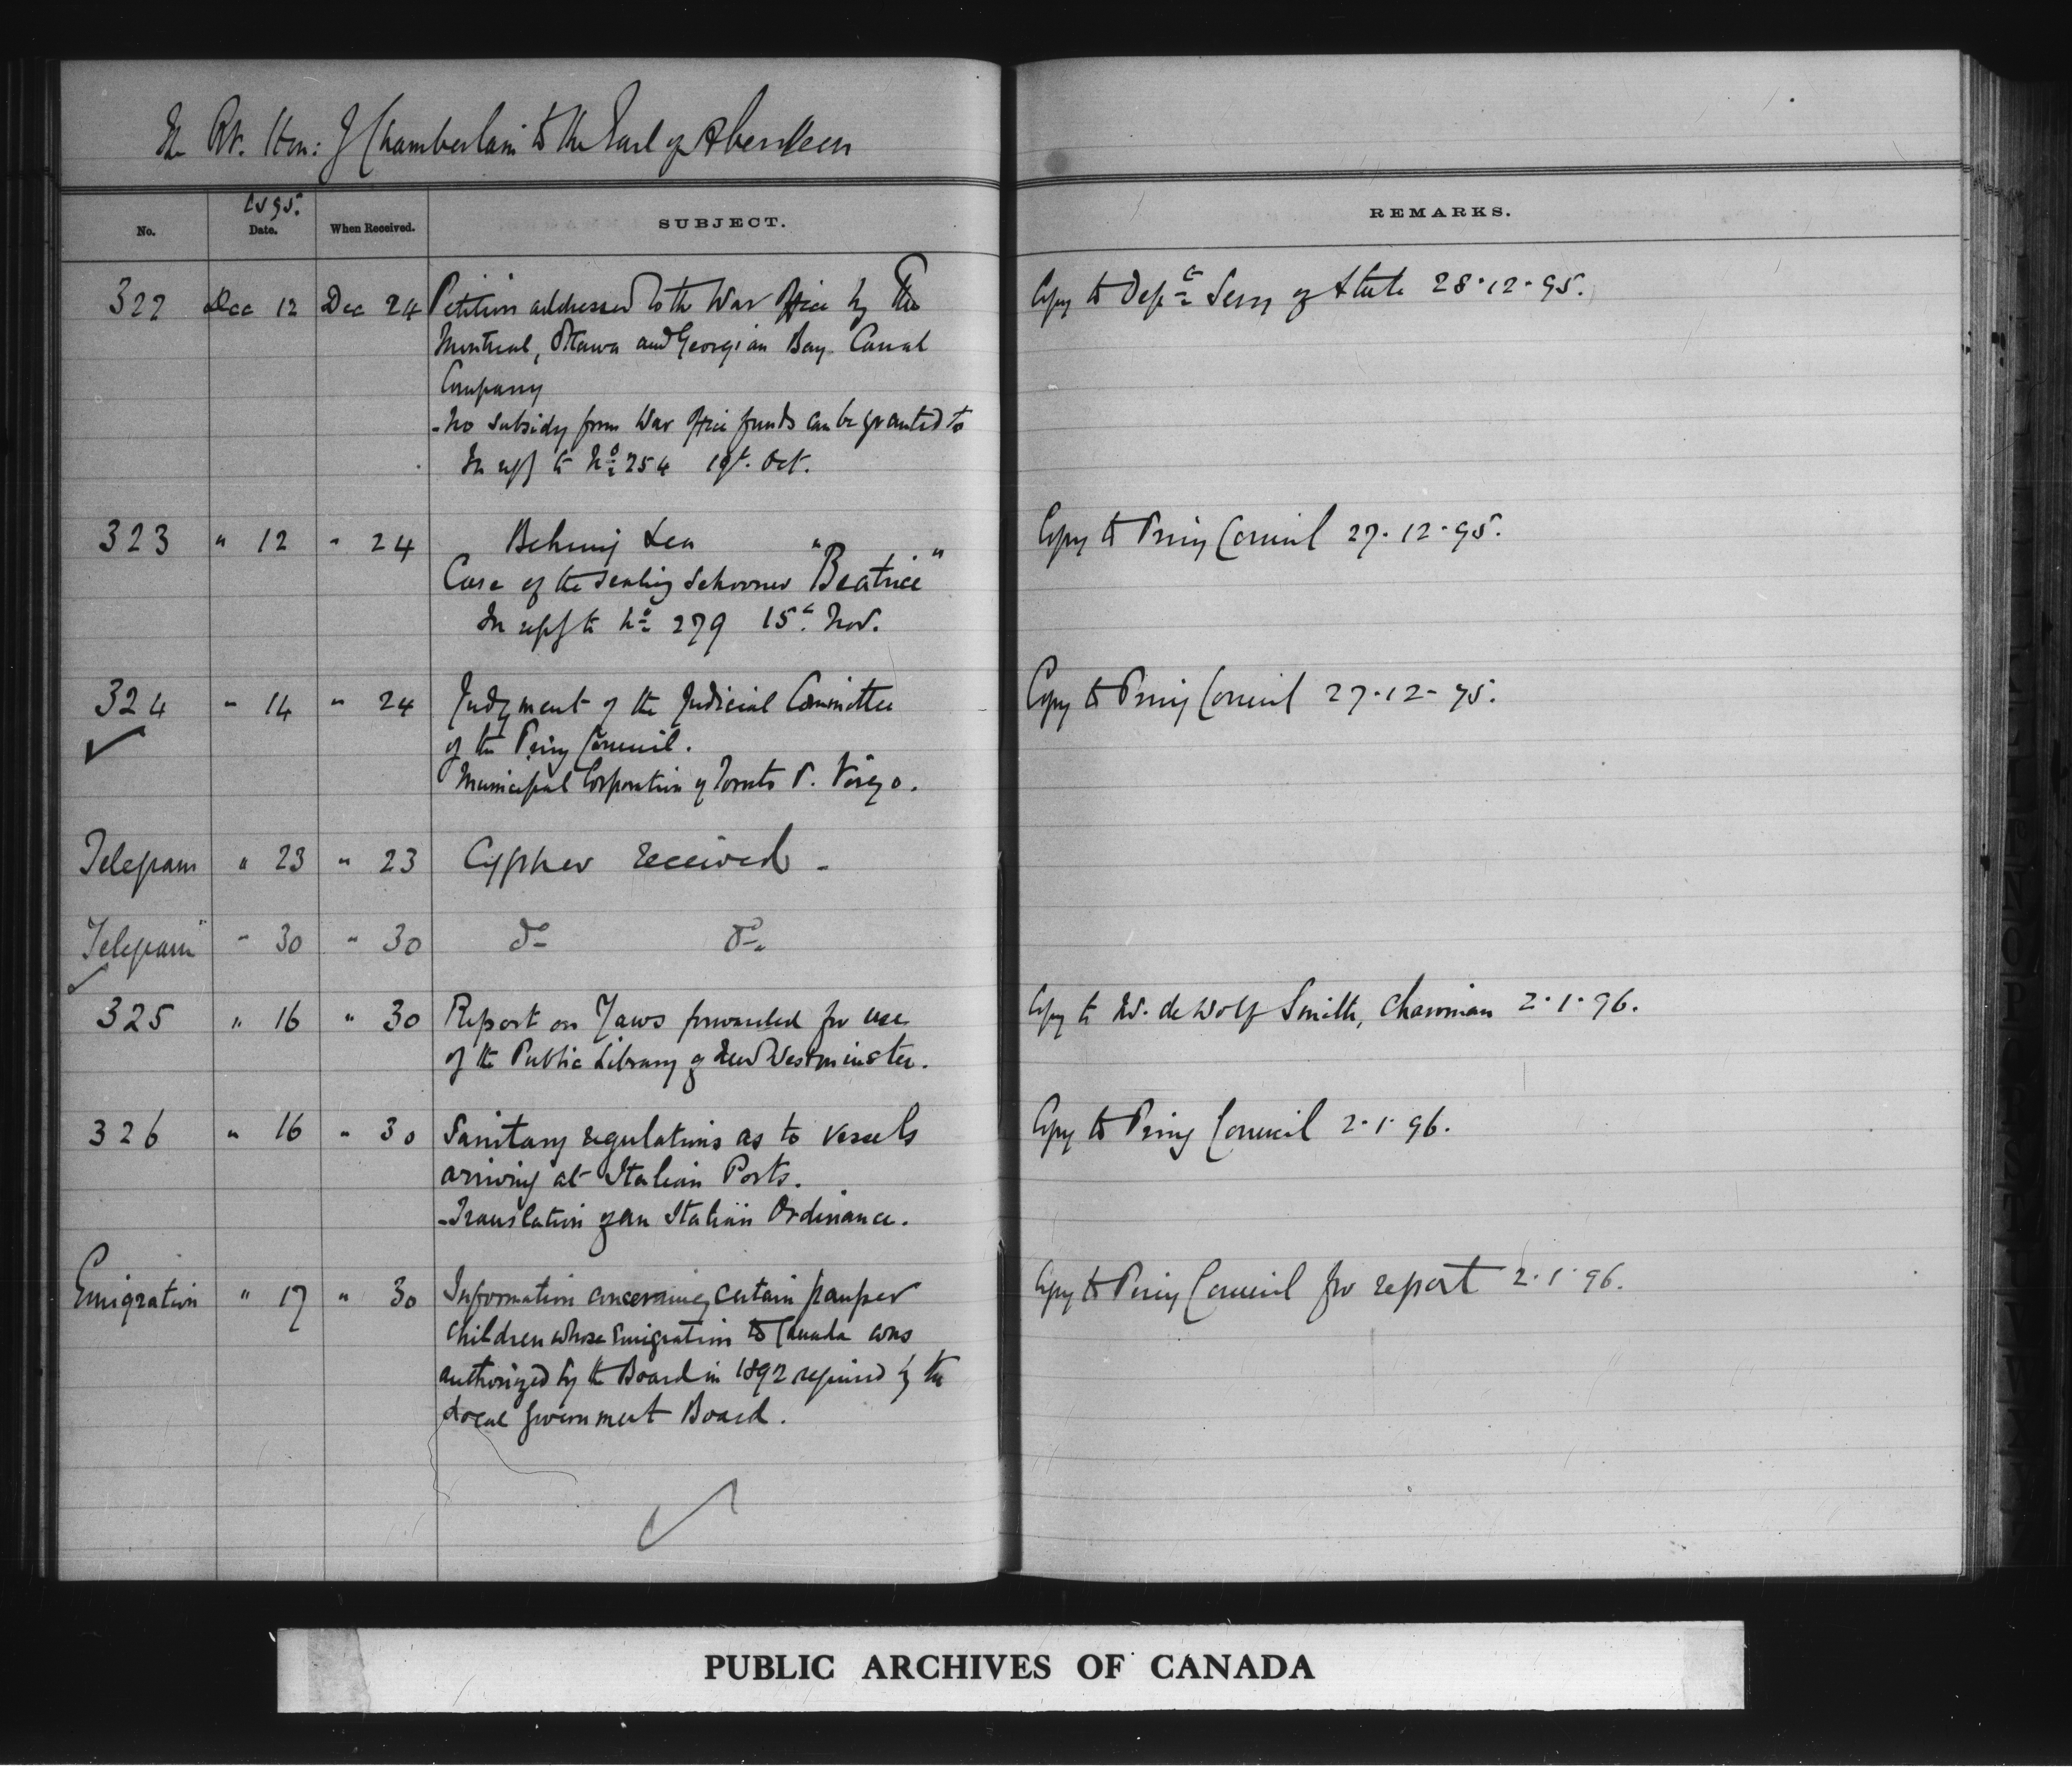 The Rt. Hon: J Chamberlain to the Earl of Aberdeen
No. 1895. Date. When Received. SUBJECT. REMARKS.
322 Dec 12 Dec 24 Petition addressed to the War Office by The Copy to Depᵗ Secy of State 28.12.95.
Montreal, Ottawa and Georgian Bay Canal
Company
- No subsidy from War Office funds can be granted to
In reply to Nº 254 19t. Oct.
323 " 12 " 24 Behring Sea Copy to Privy Council 27.12.95.
Case of the Sealing Schooner "Beatrice"
In reply to Nº 279 15ᵗ Nov.
324 " 14 " 24 Judgment of the Judicial Committee Copy to Privy Council 27.12-95.
of the Privy Council.
Municipal Corporation of Toronto v. Virgo.
Telegram " 23 " 23 Cypher received -
Telegram " 30 " 30 do do
325 " 16 " 30 Report on Yaws forwarded for use Copy to W. de Wolf Smith, Chairman 2.1.96.
of the Public Library of New Westminster.
326 " 16 " 30 Sanitary regulations as to vessels Copy to Privy Council 2.1.96.
arriving at Italian Ports.
- Translation of an Italian Ordinance.
Emigration " 17 " 30 Information concerning certain pauper Copy to Privy Council for report 2.1.96.
children whose Emigration to Canada was
authorized by the Board in 1892 required by the
Local Government Board.
PUBLIC ARCHIVES OF CANADA